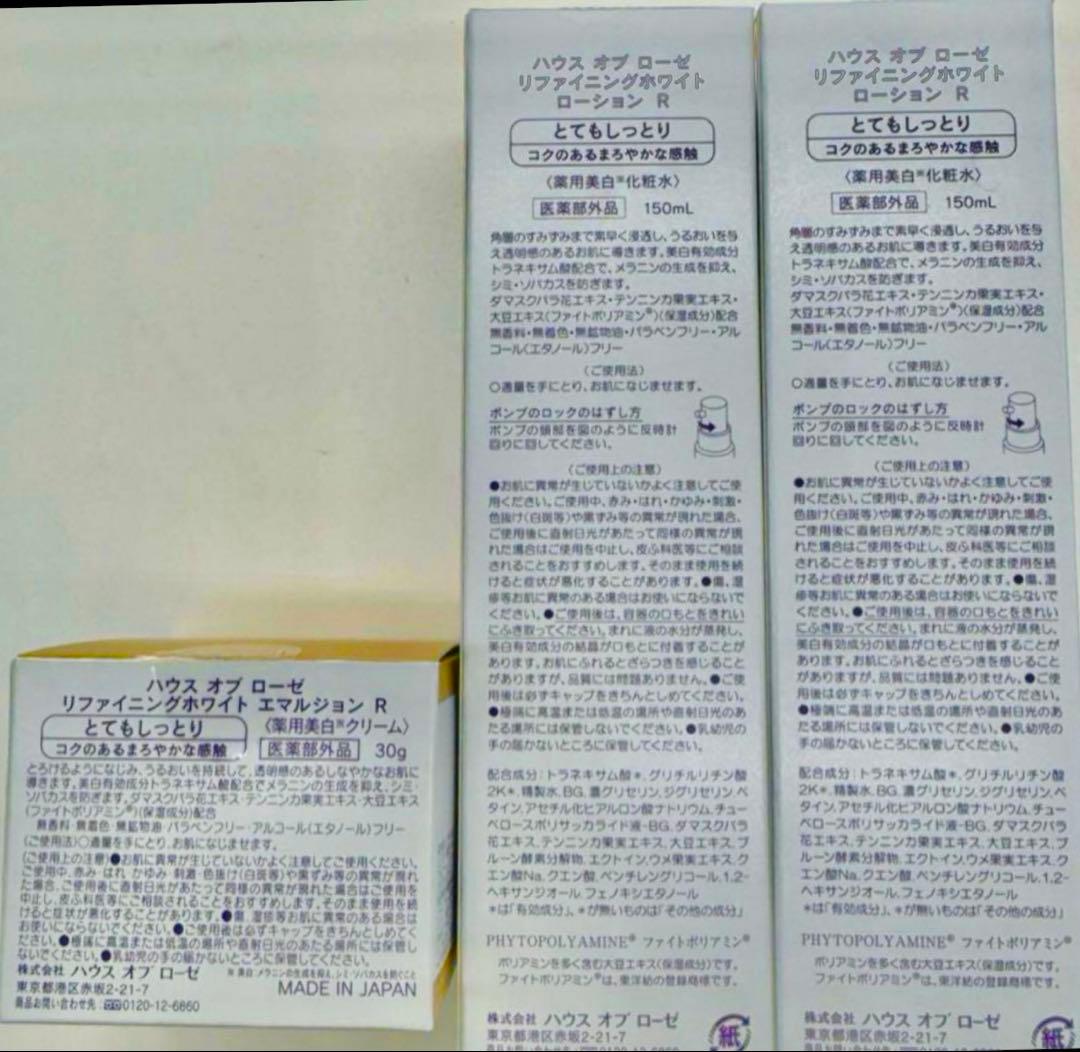 ハウス オブ ローゼ
リファイニングホワイト エマルジョン R
とてもしっとり
コクのあるまろやかな感触
〈薬用美白※クリーム〉
医薬部外品 30g
とろけるようになじみ、うるおいを持続して、透明感のあるしなやかなお肌に
導きます。美白有効成分トラネキサム酸配合でメラニンの生成を抑え、シミ・
ソバカスを防ぎます。ダマスクバラ花エキス・テンニンカ果実エキス・大豆エキス
(ファイトポリアミン®)(保湿成分)配合
無香料・無着色・無鉱物油・パラベンフリー・アルコール(エタノール)フリー
(ご使用法)○適量を手にとり、お肌になじませます。
(ご使用上の注意)●お肌に異常が生じていないかよく注意してご使用ください。
ご使用中、赤み・はれ・かゆみ・刺激・色抜け(白斑等)や黒ずみ等の異常が現れ
た場合、ご使用後に直射日光があたって同様の異常が現れた場合はご使用を
中止し、皮ふ科医等にご相談されることをおすすめします。そのまま使用を続
けると症状が悪化することがあります。●傷、湿疹等お肌に異常のある場合は
お使いにならないでください。●ご使用後は必ずキャップをきちんとしめてく
ださい。●極端に高温または低温の場所や直射日光のあたる場所には保管し
ないでください。●乳幼児の手の届かないところに保管してください。
株式会社 ハウス オブ ローゼ
※美白:メラニンの生成を抑え、シミ・ソバカスを防ぐこと
東京都港区赤坂2-21-7
MADE IN JAPAN
商品お問い合わせ先:0120-12-6860
ハウス オブ ローゼ
リファイニングホワイト
ローション R
とてもしっとり
コクのあるまろやかな感触
〈薬用美白※化粧水〉
医薬部外品 150mL
角層のすみずみまで素早く浸透し、うるおいを与
え透明感のあるお肌に導きます。美白有効成分
トラネキサム酸配合で、メラニンの生成を抑え、
シミ・ソバカスを防ぎます。
ダマスクバラ花エキス・テンニンカ果実エキス・
大豆エキス(ファイトポリアミン®)(保湿成分)配合
無香料・無着色・無鉱物油・パラベンフリー・アル
コール(エタノール)フリー
〈ご使用法〉
○適量を手にとり、お肌になじませます。
ポンプのロックのはずし方
ポンプの頭部を図のように反時計
回りに回してください。
〈ご使用上の注意〉
●お肌に異常が生じていないかよく注意してご使
用ください。ご使用中、赤み・はれ・かゆみ・刺激・
色抜け(白斑等)や黒ずみ等の異常が現れた場合、
ご使用後に直射日光があたって同様の異常が現
れた場合はご使用を中止し、皮ふ科医等にご相談
されることをおすすめします。そのまま使用を続
けると症状が悪化することがあります。●傷、湿
疹等お肌に異常のある場合はお使いにならないで
ください。●ご使用後は、容器の口もとをきれい
にふき取ってください。まれに液の水分が蒸発し、
美白有効成分の結晶が口もとに付着することが
あります。お肌にふれるとざらつきを感じること
がありますが、品質には問題ありません。●ご使
用後は必ずキャップをきちんとしめてください。
●極端に高温または低温の場所や直射日光のあ
たる場所には保管しないでください。●乳幼児の
手の届かないところに保管してください。
配合成分:トラネキサム酸*、グリチルリチン酸
2K*、精製水、BG、濃グリセリン、ジグリセリン、ベ
タイン、アセチル化ヒアルロン酸ナトリウム、チュー
ベロースポリサッカライド液-BG、ダマスクバラ
花エキス、テンニンカ果実エキス、大豆エキス、プ
ルーン酵素分解物、エクトイン、ウメ果実エキス、ク
エン酸Na、クエン酸、ペンチレングリコール、1,2-
ヘキサンジオール、フェノキシエタノール
*は「有効成分」、*が無いものは「その他の成分」
PHYTOPOLYAMINE® ファイトポリアミン®
ポリアミンを多く含む大豆エキス(保湿成分)です。
ファイトポリアミン®は、東洋紡の登録商標です。
株式会社 ハウス オブ ローゼ
東京都港区赤坂2-21-7
紙
ハウス オブ ローゼ
リファイニングホワイト
ローション R
とてもしっとり
コクのあるまろやかな感触
〈薬用美白※化粧水〉
医薬部外品 150mL
角層のすみずみまで素早く浸透し、うるおいを与
え透明感のあるお肌に導きます。美白有効成分
トラネキサム酸配合で、メラニンの生成を抑え、
シミ・ソバカスを防ぎます。
ダマスクバラ花エキス・テンニンカ果実エキス・
大豆エキス(ファイトポリアミン®)(保湿成分)配合
無香料・無着色・無鉱物油・パラベンフリー・アル
コール(エタノール)フリー
〈ご使用法〉
○適量を手にとり、お肌になじませます。
ポンプのロックのはずし方
ポンプの頭部を図のように反時計
回りに回してください。
〈ご使用上の注意〉
●お肌に異常が生じていないかよく注意してご使
用ください。ご使用中、赤み・はれ・かゆみ・刺激・
色抜け(白斑等)や黒ずみ等の異常が現れた場合、
ご使用後に直射日光があたって同様の異常が現
れた場合はご使用を中止し、皮ふ科医等にご相談
されることをおすすめします。そのまま使用を続
けると症状が悪化することがあります。●傷、湿
疹等お肌に異常のある場合はお使いにならないで
ください。●ご使用後は、容器の口もとをきれい
にふき取ってください。まれに液の水分が蒸発し、
美白有効成分の結晶が口もとに付着することが
あります。お肌にふれるとざらつきを感じること
がありますが、品質には問題ありません。●ご使
用後は必ずキャップをきちんとしめてください。
●極端に高温または低温の場所や直射日光のあ
たる場所には保管しないでください。●乳幼児の
手の届かないところに保管してください。
配合成分:トラネキサム酸*、グリチルリチン酸
2K*、精製水、BG、濃グリセリン、ジグリセリン、ベ
タイン、アセチル化ヒアルロン酸ナトリウム、チュー
ベロースポリサッカライド液-BG、ダマスクバラ
花エキス、テンニンカ果実エキス、大豆エキス、プ
ルーン酵素分解物、エクトイン、ウメ果実エキス、ク
エン酸Na、クエン酸、ペンチレングリコール、1,2-
ヘキサンジオール、フェノキシエタノール
*は「有効成分」、*が無いものは「その他の成分」
PHYTOPOLYAMINE® ファイトポリアミン®
ポリアミンを多く含む大豆エキス(保湿成分)です。
ファイトポリアミン®は、東洋紡の登録商標です。
株式会社 ハウス オブ ローゼ
東京都港区赤坂2-21-7
紙